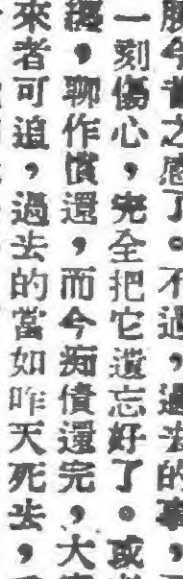 今昔之感了。不過，過去的事，
一刻傷心，完全把它遺忘好了。或
，聊作償還，而今痴債還完，大
來者可追，過去的當如昨天死去，